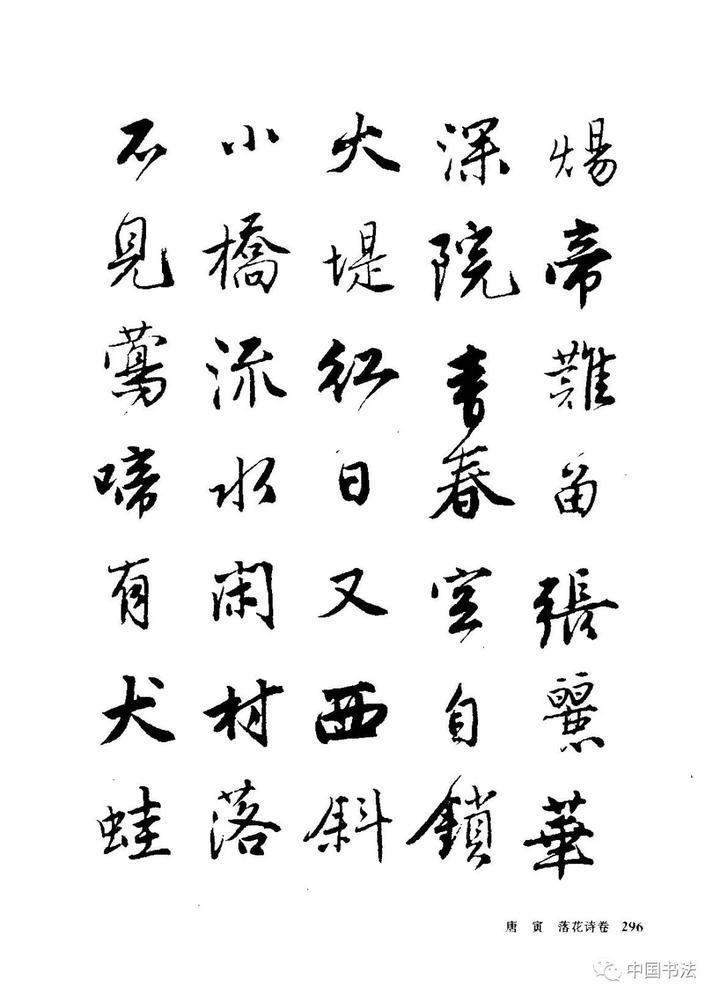 煬帝難留張麗華
深院青春空自鎖
大堤紅日又西斜
小橋流水閑村落
不見鶯啼有犬蛙
唐 寅 落花诗卷 296
中国书法